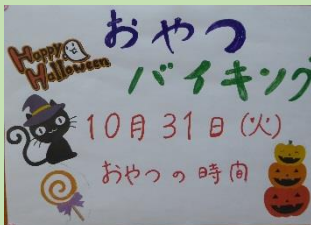 Happy
Halloween
おやつ
バイキング
10月31日(火)
おやつの時間